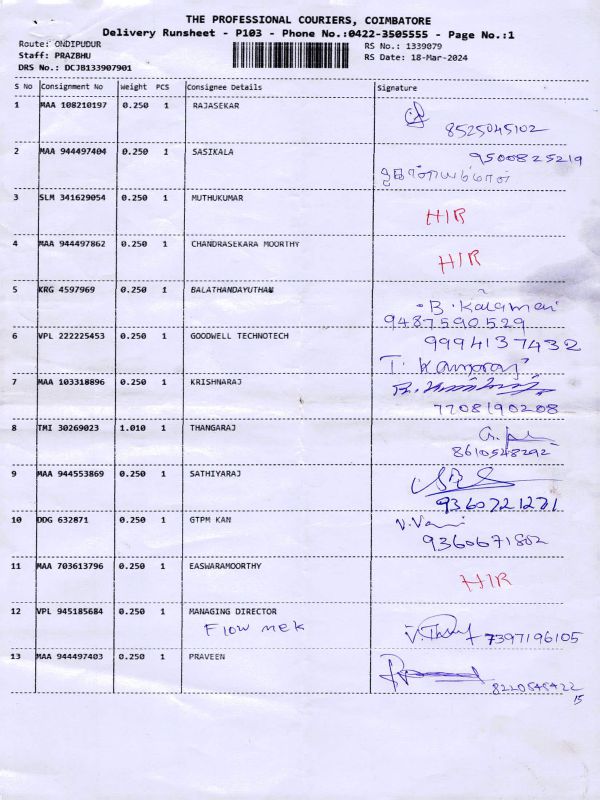 THE PROFESSIONAL COURIERS, COIMBATORE
Delivery Runsheet - P103 - Phone No.:0422-3505555 - Page No.:1
Route: ONDIPUDUR
Staff: PRAZBHU
DRS No.: DCJB133907901
RS No.: 1339079
RS Date: 18-Mar-2024
S No Consignment No Weight PCS Consignee Details Signature
1 MAA 108210197 0.250 1 RAJASEKAR
8525045102
2 MAA 944497404 0.250 1 SASIKALA 9500825219
3 SLM 341629054 0.250 1 MUTHUKUMAR
HIR
4 MAA 944497862 0.250 1 CHANDRASEKARA MOORTHY
HIR
5 KRG 4597969 0.250 1 BALATHANDAYUTHAM
B. Kalamani
9487590529
6 VPL 222225453 0.250 1 GOODWELL TECHNOTECH 9994137432
T. Kamaraj
7 MAA 103318896 0.250 1 KRISHNARAJ
7708190208
8 TMI 30269023 1.010 1 THANGARAJ
8610548292
9 MAA 944553869 0.250 1 SATHIYARAJ
9360721271
10 DDG 632871 0.250 1 GTPM KAN
9360671802
11 MAA 703613796 0.250 1 EASWARAMOORTHY
HIR
12 VPL 945185684 0.250 1 MANAGING DIRECTOR
Flow mek 7397196105
13 MAA 944497403 0.250 1 PRAVEEN
8220545422
15